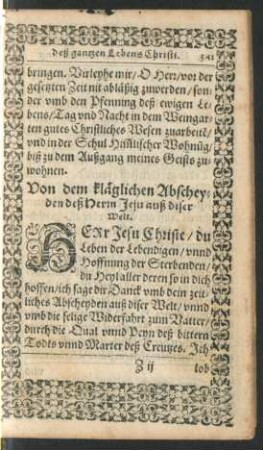 deß gantzen Lebens Christi. 341
bringen. Verleyhe mir/ O Herr/ vor der
gesetzten Zeit nit abläßig zuwerden/ son-
der vmb den Pfenning deß ewigen Le-
bens/ Tag vnd Nacht in dem Weingar-
ten gutes Christliches Wesen zuarbeitē/
vnd in der Schul Himlischer Wohnūg/
biß zu dem Außgang meines Geists zu-
wohnen.
Von dem kläglichen Abschey-
den deß Herrn Jesu auß diser
Welt.
HErr Jesu Christe/ du
Leben der Lebendigen/ vnnd
Hoffnung der Sterbenden/
du Heyl aller deren so in dich
hoffen/ ich sage dir Danck vmb dein zeit-
liches Abscheyden auß diser Welt/ vnnd
vmb die selige Widerfahrt zum Vatter/
durch die Qual vnnd Peyn deß bittern
Todts vnnd Marter deß Creutzes. Ich
Z ij lob